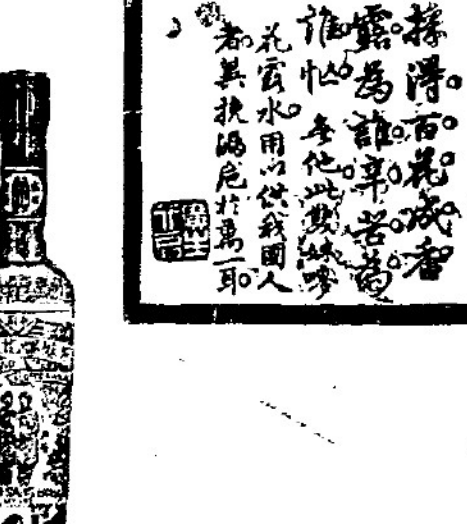 採得百花成香
露為誰辛苦為
誰忙無他此雙妹嘜
花露水用以供我國人
者冀挽漏卮於萬一耳